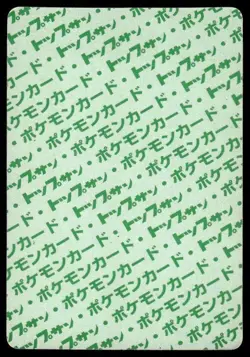 トップサン・
トップサン・ポケモンカード
ポケモンカード・トップサン・
トップサン・ポケモンカード・
ポケモンカード・トップサン・
トップサン・ポケモンカード・
ポケモンカード・トップサン・
トップサン・ポケモンカード・
ポケモンカード・トップサン・
トップサン・ポケモンカード・
ポケモンカード・トップサン・
トップサン・ポケモンカード・
ポケモンカード・トップサン
ポケモンカード